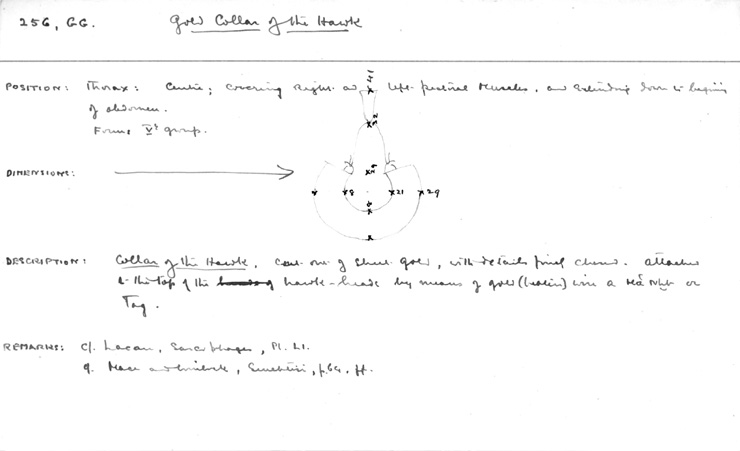 256, GG. Gold Collar of the Hawk
POSITION: Thorax: Centre; covering right and left pectoral muscles, and extending down to beginning
of abdomen.
Forms Vth group.
DIMENSIONS:
8 21 29
DESCRIPTION: Collar of the Hawk, cut out of sheet gold, with details chased. Attached
to the top of the hawk-heads by means of gold wire a or
Tag.
REMARKS: cf. Lacau, Sarcophages, Pl. LI.
cf. Mace and Winlock, Senebtisi, p. 64. ff.